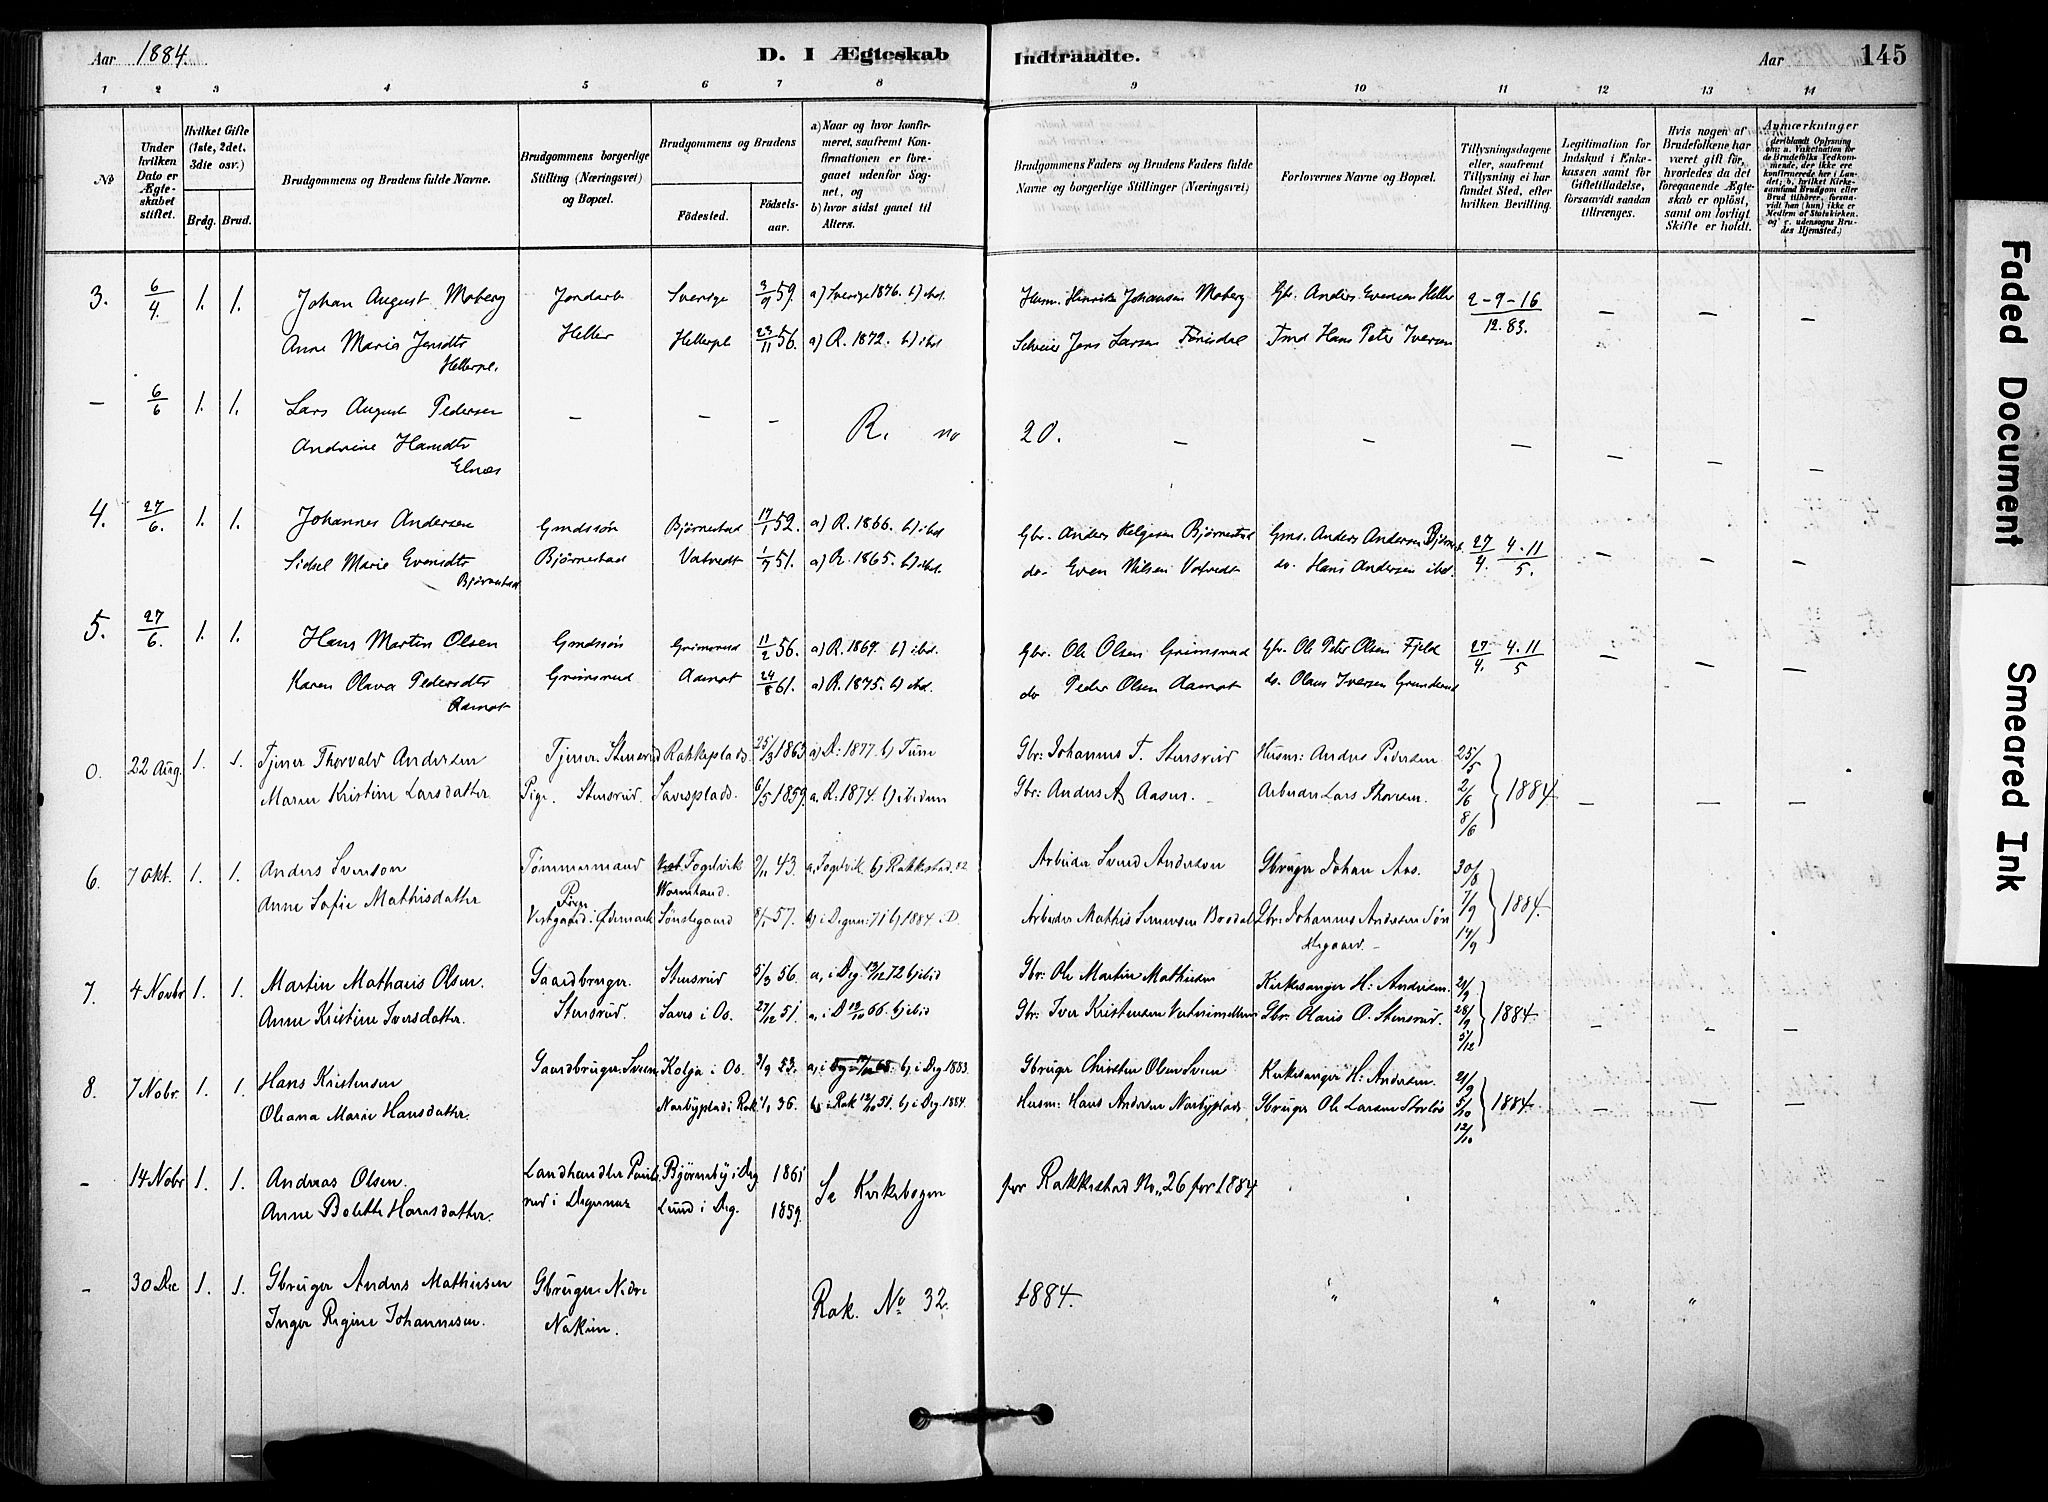 Aar 1884.
D. I Ægteskab Indtraadte.
Aar 145
1 2 3 4 5 6 7 8 9 10 11 12 13 14
No
Under hvilken Dato er Ægteskabet stiftet.
Hvilket Gifte (1ste, 2det, 3die osv.)
Brdg. Brud.
Brudgommens og Brudens fulde Navne.
Brudgommens borgerlige Stilling (Næringsvei) og Bopæl.
Brudgommens og Brudens
Födested. Födsels-aar.
a) Naar og hvor konfirmeret, saafremt Konfirmationen er foregaaet udenfor Sognet, og
b) hvor sidst gaaet til Alters.
Brudgommens Faders og Brudens Faders fulde Navne og borgerlige Stillinger (Næringsvei)
Forlovernes Navne og Bopæl.
Tillysningsdagene eller, saafremt Tillysning ei har fundet Sted, efter hvilken Bevilling.
Legitimation for Indskud i Enkekassen samt for Giftetilladelse, forsaavidt saadan tiltrænges.
Hvis nogen af Brudefolkene har været gift før, hvorledes da det foregaaende Ægteskab er opløst, samt om lovligt Skifte er holdt.
Anmærkninger
3. 6/4 1. 1. Johan August Moberg Jordarb Sverige 2/9 59. a) Sverige 1876. b) ibd. Husm. Henrik Johansen Moberg Gbr. Anders Evensen Heller 2-9-16
Anne Maria Jensdtr Heller Hellerpl 23/11 56. a) R. 1872. b) ibd Jens Larsen Hans Peter Iversen 12. 83. – – –
Hellerpl.
– 6/6 1. 1. Lars August Pedersen – – – R. no 20. – – – – – –
Andrine Hansdtr
Elnæs
4. 27/6. 1. 1. Johannes Andersen Gmdssøn Bjørnestad 17/1 52. a) R. 1866. b) ibd Gbr. Anders Helgesen Bjørnestad Gms. Anders Andersen Bjørnest. 27/4. 4.11/5.
Sidsel Marie Evensdtr Bjørnestad Vatvedt 1/7 51. a) R. 1865. b) ibd. do. Even Nilsen Vatvedt do. Hans Andersen ibd. – – –
Bjørnestad
5. 27/6. 1. 1. Hans Martin Olsen Gmdssøn Grimsrud 11/2 56. a) R. 1869. b) ibd. Gbr. Ole Olsen Grimsrud Gbr. Ole Peter Olsen Fjeld 27/4. 4.11/5
Karen Olava Pedersdtr Grimsrud Aamot 24/8 61. a) R. 1875. b) ibd. do Peder Olsen Aamot do. Olaus Iversen – – –
Aamot
0. 22 Aug. 1. 1. Tjener Thorvald Andersen Tjener. Stensrud Rakkeplads. 25/3 1863 a) D: 1877 b) Tune Gbr: Johannes T. Stensrud Husm: Anders Pedersen. 25/5
Maren Kristine Larsdatter Pige. Stensrud. Savesplads. 6/5 1859. a. R: 1874. b) ibidem Gbr: Anders A Aasen. Arbeider Lars Thoresen. 2/6 1884. – – –
8/6
6. 7 Okt. 1. 1. Anders Svenson Tømmermand Fogelvik 9/11 43. a, Fogelvik b) Rakkestad 82 Arbeider Svend Anderson Gbruger Johan Aas. 30/8
Wormeland.
Anne Sofie Mathisdatter Pige Vestgaard i Ødemark Sønstegaard 57. b) i Degernes 71 b) 1884 i D. Arbeider Mathis Simensen Brodal Gbr: Johannes Andersen Sønstegaard – 7/9 1884.
14/9
7. 4 Novbr 1. 1. Martin Mathæus Olsen. Gaardbruger. Stensrud 5/3 56 a, i Deg 72 b) ibid Gbr: Ole Martin Mathisen Kirkesanger H: Andersen. 21/9
Anne Kristine Iversdatter. Stensrud. Saves i Os. 27/12 51. a, i D 66 b) ibid Gbr: Iver Kristensen Gbr: Olaus O. Stensrud. 28/9 1884 – – –
5/12
8. 7 Nobr. 1. 1. Hans Kristensen Gaardbruger. Sveen. Kolja i Os. 3/9 53. b, i Deg 1883. Gbruger Christen Olsen Sveen Kirkesanger H: Andersen. 21/9
Oleana Marie Hansdatter. Norbyplads i Rak 36. i Rak 51. b) i Deg. 1884. Husm: Hans Andersen Norbyplads. Gbruger Ole Larsen 5/10 1884 – – –
12/10
– 14 Nobr 1. 1. Andreas Olsen. Landhandler i Degernes Bjørneby i Deg 1861 Se Kirkebogen for Rakkestad No. 26 for 1884
Anne Bolette Hansdatter. Lund i Deg. 1859.
– 30 Dec 1. 1. Gbruger Anders Mathisen Gbruger. Nedre Rak. No 32. 1884. " " " "
Inger Regine Johannesen. Nakim.
Faded Document
Smeared Ink